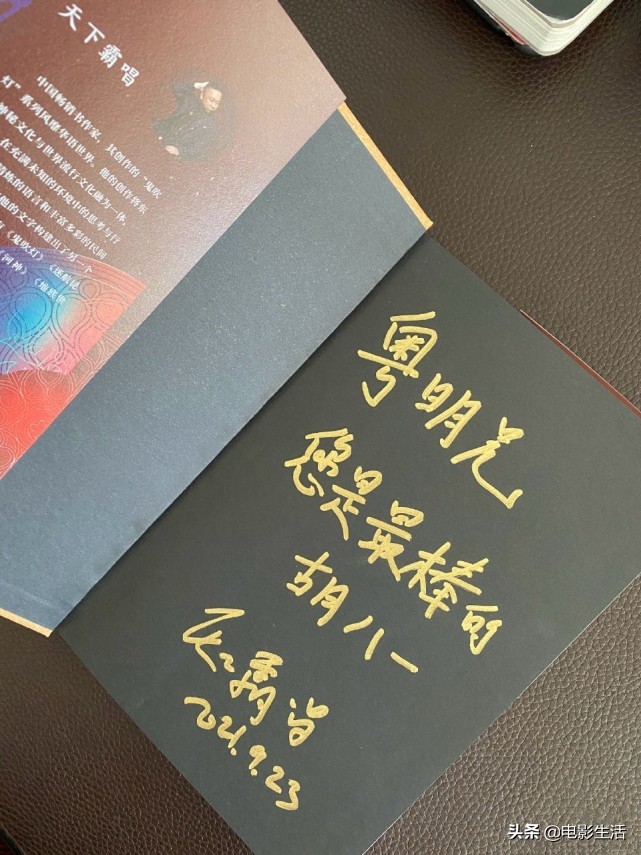 天下霸唱
中国畅销书作家，其创作的“鬼吹
灯”系列风靡华语世界。他的创作将东
神秘文化与世界流行文化融为一体，
在充满未知的环境中的思考与行
精炼的语言和丰富多彩的民间
他的文字构建出了另一个
《鬼吹灯》《迷航昆
河神》《地底世
粤明兄
您是最棒的
胡八一
天下霸唱
2021.9.23
头条 @电影生活